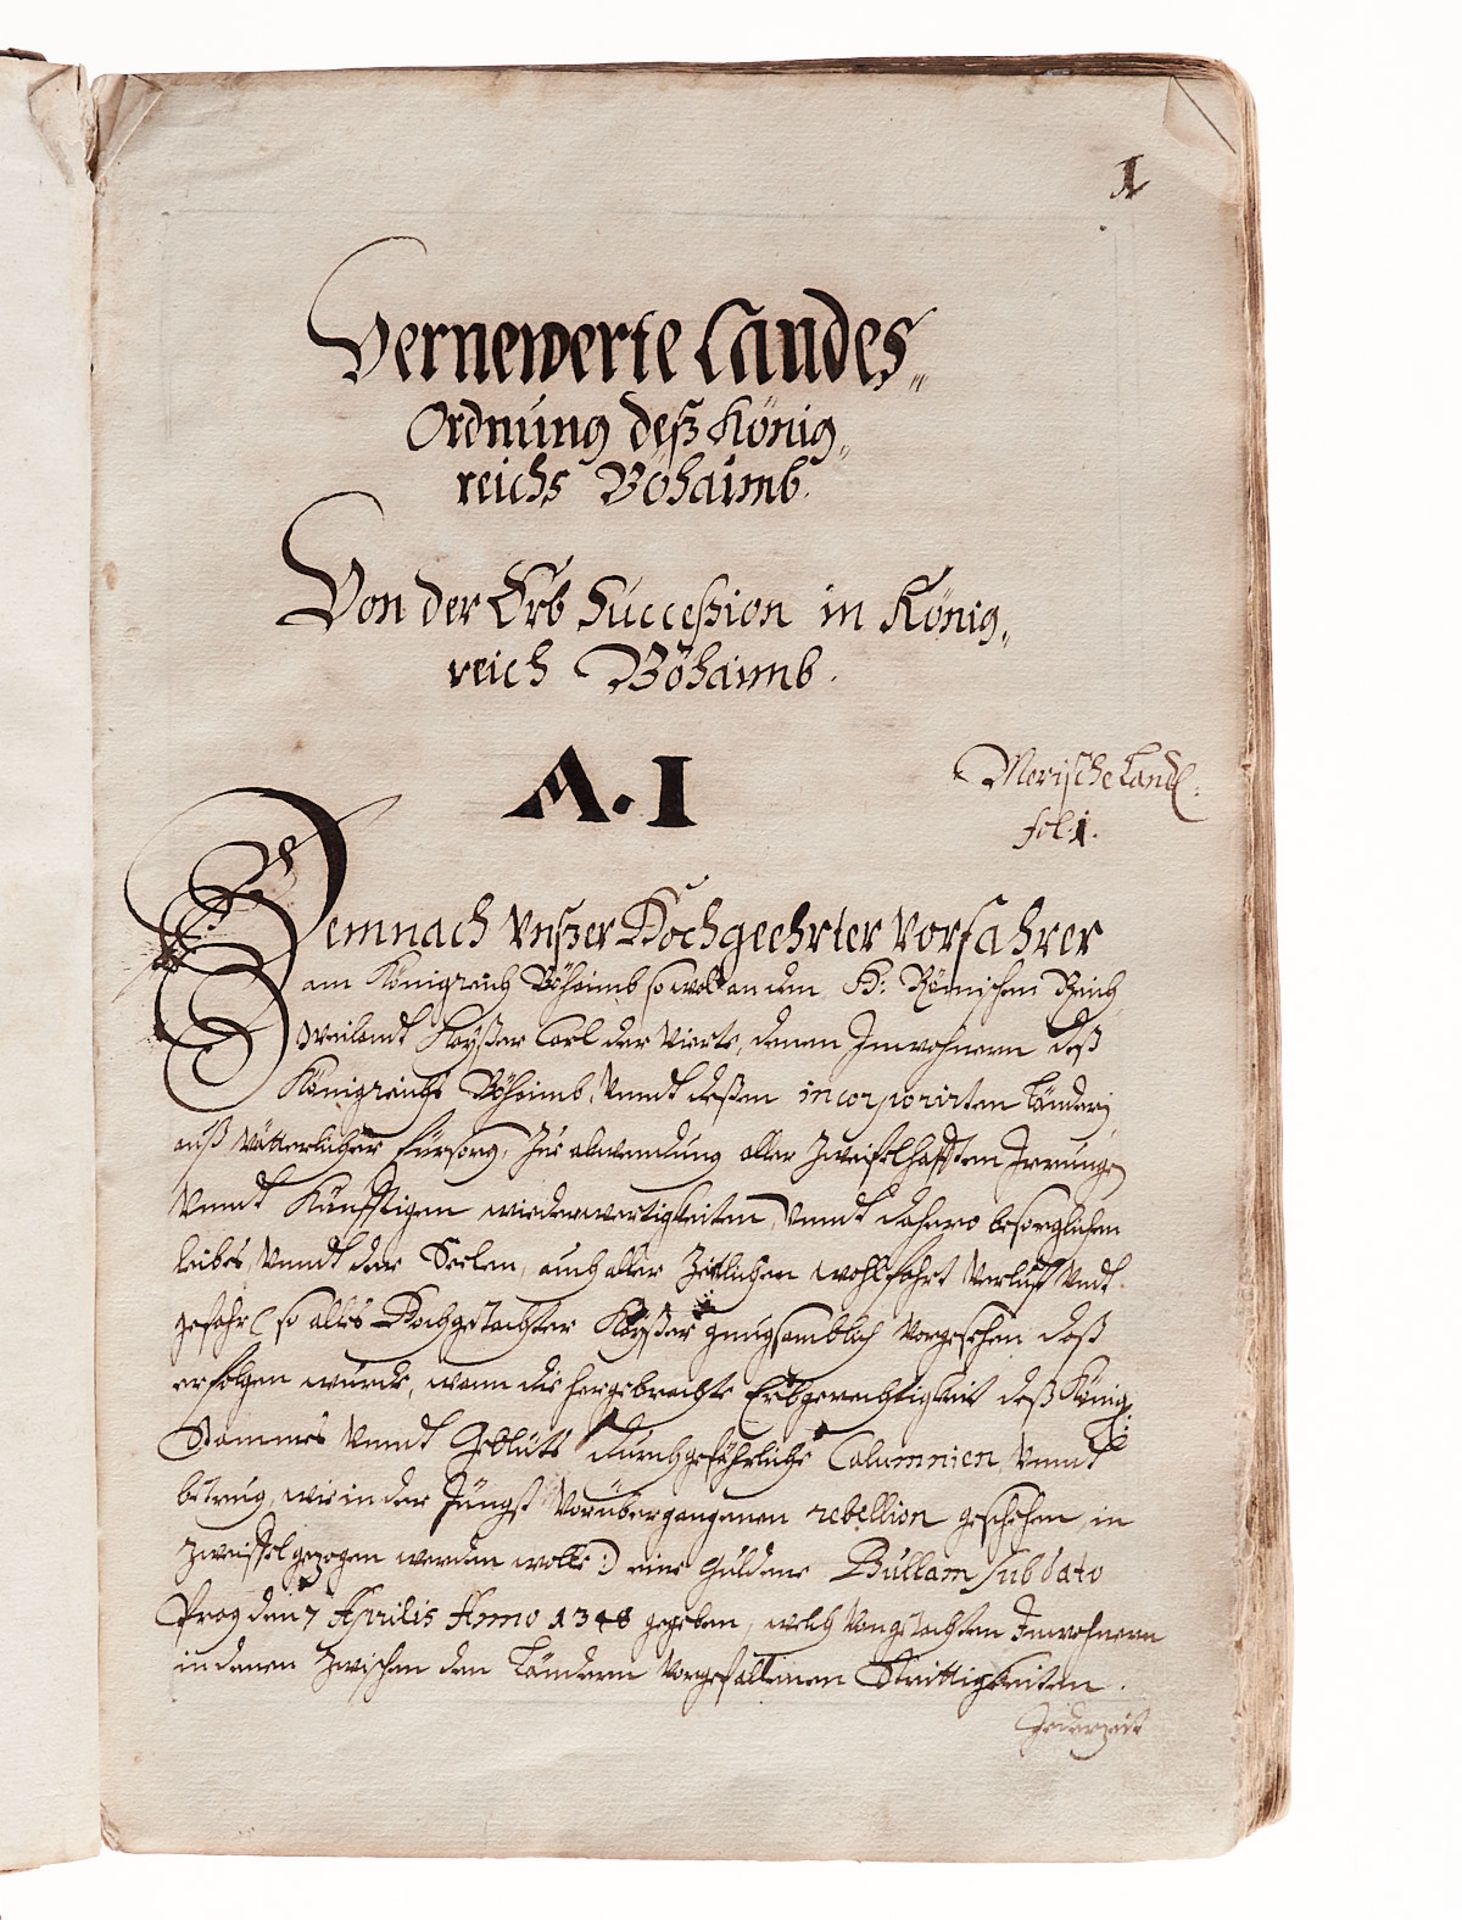 1
Vernewerte Landes„
Ordnung deß König„
reichs Böhaimb.
Von der Erb Succeßion in König„
reich Böhaimb.
A. I
Merische Landt.
fol: 1.
Demnach Vnßer Hochgeehrter Vorfahrer
am Königreich Böhaimb so wol an dem H: Römischen Reich,
Weilandt Kayßer Carl der Vierte, denen Inwohnern deß
Königreichs Böhaimb, Vnndt deßen incorporirten Länderj
auß Vätterlicher fürsorg, Zue abwendung aller Zweifelhafften Irrungen
Vnndt Künfftigen wiederwertigkeiten, Vnndt dahero besorglichen
leibes, Vnndt der Seelen, auch aller Zeitlichen wohlfahrt Verlust Vndt
gefahr (so alles Hochgedachter Kayßer gnugsamblich Vorgesehen daß
erfolgen würde, wann die hergebrachte Erbgerechtigkeit deß König:
Stammes Vnndt Geblüts durch gefährliche Calumnien, Vnndt
betrug, wie in der Jüngst Vorübergangenen rebellion geschehen, in
Zweiffel gezogen werden wolte:) eine Guldene Bullam sub dato
Prag den 7 Aprilis Anno 1348 gegeben, welch Vorgedachten Inwohnern
in denen Zwischen den Ländern Vorgefallenen Strittigkeiten.
Jederzeit